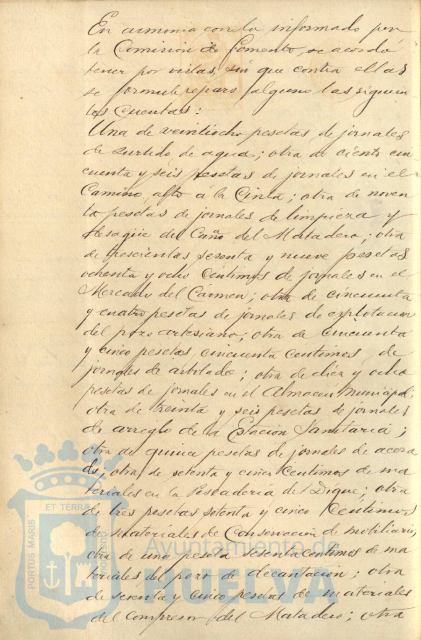 En armonia con lo informado por
la Comisión de Fomento, se acordó
tener por vistas, sin que contra ellas
se formule reparo alguno las siguien
tes Cuentas:
Una de veintiocho pesetas, de jornales
de surtido de agua; otra de ciento cin
cuenta y seis pesetas de jornales en el
Camino alto á la Cinta; otra de noven
ta pesetas de jornales de limpieza y
desagüe del Caño del Matadero; otra
de trescientas sesenta y nueve pesetas
ochenta y ocho centimos de jornales en el
Mercado del Carmen; otra de cincuenta
y cuatro pesetas de jornales de explotacion
del pozo artesiano; otra de cincuenta
y cinco pesetas, cincuenta centimos, de
jornales de arbolado; otra de diez y ocho
pesetas de jornales en el Almacen municipal;
otra de treinta y seis pesetas de jornales
de arreglo de la Estacion Sanitaria;
otra de quince pesetas de jornales de acera
do; otra de setenta y cinco centimos de ma
teriales en la Pescaderia del Dique; otra
de tres pesetas setenta y cinco centimos
de materiales de Conservacion de mobiliario;
otra de una peseta sesenta centimos de ma
teriales del pozo de decantacion; otra
de sesenta y cinco pesetas de materiales
del Compresor del Matadero; otra
PORTUS MARIS
ET TERRÆ
Ayuntamiento de
HUELVA